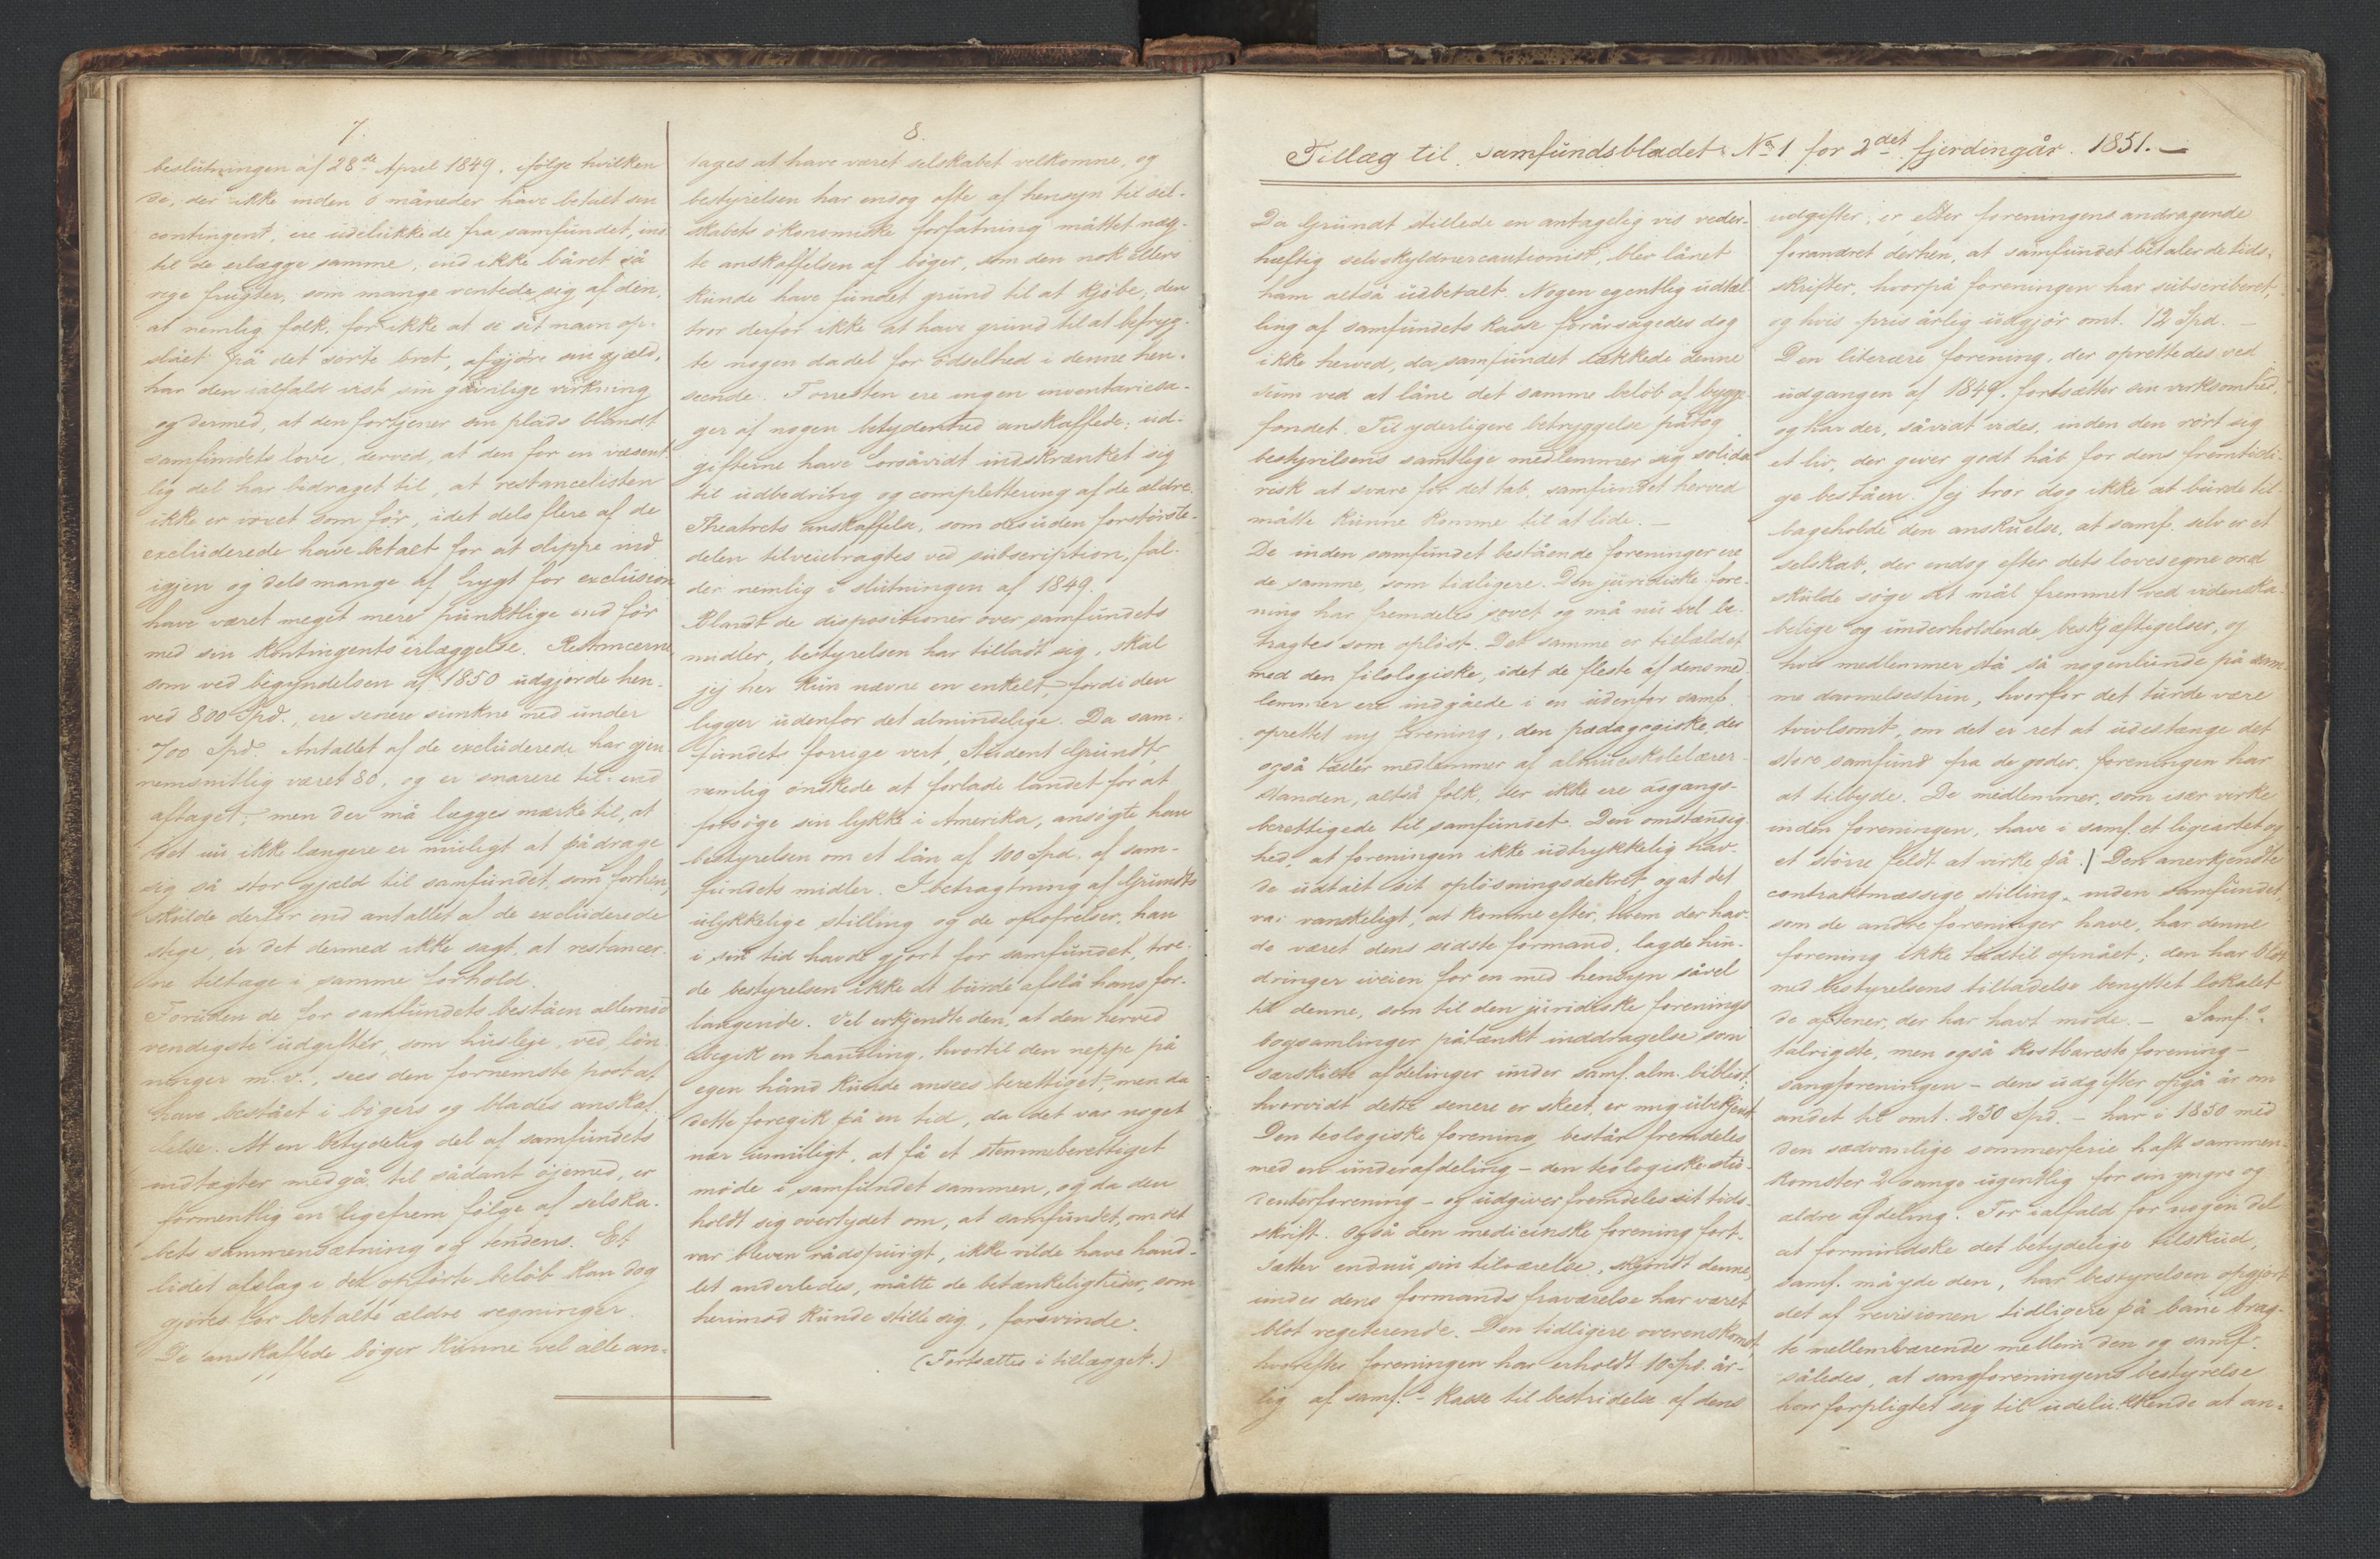 7.
beslutningen af 28de April 1849, ifølge hvilken
de, der ikke inden 6 måneder have betalt sin
contingent, ere udelukkede fra samfundet, ind
til de erlægge samme, end ikke båret så
rige frugter, som mange ventede sig af den,
at nemlig folk, for ikke at se sit navn op-
slået på det sorte bret, afgjøre sin gjæld,
har den ialfald vist sin gavnlige virkning
og dermed, at den fortjener sin plads blandt
samfundets love, derved, at den for en væsent
lig del har bidraget til, at restancelisten
ikke er voxet som før, idet dels flere af de
excluderede have betalt for at slippe ind
igjen og dels mange af frygt for exclusion
have været meget mere punktlige end før
med sin kontingents erlæggelse. Restancerne
som ved begyndelsen af 1850 udgjorde hen-
ved 800 Spd., ere senere sunkne ned under
700 Spd. Antallet af de excluderede har gjen
nemsnitlig været 80, og er snarere til- end
aftaget; men der må lægges mærke til, at
det nu ikke længere er muligt at pådrage
sig så stor gjæld til samfundet, som forhen,
skulde derfor end antallet af de excluderede
stige, er det dermed ikke sagt, at restancer-
ne tiltage i samme forhold.
Foruden de for samfundets beståen allernød
vendigste udgifter, som husleje, ved, løn-
ninger m.v., sees den fornemste post at
have bestået i bøgers og blades anskaf
felse. At en betydelig del af samfundets
indtægter medgå til sådant øjemed, er
formentlig en ligefrem følge af selska-
bets sammensætning og tendens. Et
lidet afslag i det opførte beløb kan dog
gjøres for betalte ældre regninger.
De anskaffede bøger kunne vel alle an-
8.
tages at have været selskabet velkomne, og
bestyrelsen har endog ofte af hensyn til sel-
skabets økonomiske forfatning måttet næg-
te anskaffelsen af bøger, som den nok ellers
kunde have fundet grund til at kjøbe; den
tror derfor ikke at have grund til at befryg-
te nogen dadel for ødselhed i denne hen-
seende. Forresten ere ingen inventariesa-
ger af nogen betydenhed anskaffede; ud-
gifterne have forsåvidt indskrænket sig
til udbedring og complettering af de ældre.
Theatrets anskaffelse, som desuden forstørste-
delen tilveiebragtes ved subscription, fal-
der nemlig i slutningen af 1849.
Blandt de dispositioner over samfundets
midler, bestyrelsen har tilladt sig, skal
jeg her kun nævne en enkelt, fordi den
ligger udenfor det almindelige. Da sam-
fundets forrige vert, Student Grundt,
nemlig ønskede at forlade landet for at
forsøge sin lykke i Amerika, ansøgte han
bestyrelsen om et lån af 100 Spd. af sam-
fundets midler. I betragtning af Grundts
ulykkelige stilling og de opofrelser, han
i sin tid havde gjort for samfundet, tro-
de bestyrelsen ikke at burde afslå hans for-
langende. Vel erkjendte den, at den herved
begik en handling, hvortil den neppe på
egen hånd kunde ansees berettiget; men da
dette foregik på en tid, da det var noget
nær umuligt, at få et stemmeberettiget
møde i samfundet sammen, og da den
holdt sig overtydet om, at samfundet, om det
var bleven rådspurgt, ikke vilde have hand-
let anderledes, måtte de betænkeligheder, som
herimod kunde stille sig, forsvinde.
(Fortsættes i tillægget.)
Tillæg til samfundsbladet No 1 for 2det fjerdingår 1851.—
Da Grundt stillede en antagelig vis veder-
hæftig selvskyldnercautionist, blev lånet
ham altså udbetalt. Nogen egentlig udtæl-
ling af samfundets kasse forårsagedes dog
ikke herved, da samfundet dækkede denne
sum ved at låne det samme beløb af bygge-
fondet. Til yderligere betryggelse påtog
bestyrelsens samtlige medlemmer sig solida-
risk at svare for det tab, samfundet herved
måtte kunne komme til at lide. —
De inden samfundet bestående foreninger ere
de samme, som tidligere. Den juridiske fore-
ning har fremdeles sovet og må nu vel be-
tragtes som opløst. Det samme er tilfældet
med den filologiske, idet de fleste af dens med
lemmer ere indgåede i en udenfor samf.
oprettet ny forening, den pædagogiske, der
også tæller medlemmer af almueskolelærer-
standen, altså folk, der ikke ere adgangs-
berettigede til samfundet. Den omstændig-
hed, at foreningen ikke udtrykkelig hav-
de udtalt sit opløsningsdekret, og at det
var vanskeligt, at komme efter, hvem der hav-
de været dens sidste formand, lagde hin-
dringer iveien for en med hensyn såvel
til denne, som til den juridiske forenings
bogsamlinger påtænkt inddragelse som
særskilte afdelinger under samf. alm. bibliot.;
hvorvidt dette senere er skeet, er mig ubekjendt
Den teologiske forening består fremdeles
med en underafdeling – den teologiske stu-
denterforening – og udgiver fremdeles sit tids-
skrift. Også den medicinske forening fort-
sætter endnu sin tilværelse, skjøndt denne,
under dens formands fraværelse har været
blot vegeterende. Den tidligere overenskomst,
hvorefter foreningen har erholdt 10 Spd. år-
lig af samf.s kasse til bestridelse af dens
udgifter, er efter foreningens andragende
forandret derhen, at samfundet betaler de tids-
skrifter, hvorpå foreningen har subscriberet,
og hvis pris årlig udgjør omt. 12 Spd. —
Den literære forening, der oprettedes ved
udgangen af 1849, fortsætter sin virksomhed,
og har der, såvidt vides, inden den rørt sig
et liv, der giver godt håb for dens fremtidi-
ge beståen. Jeg tror dog ikke at burde til-
bageholde den anskuelse, at samf. selv er et
selskab, der endog efter dets loves egne ord
skulde søge sit mål fremmet ved videnska-
belige og underholdende beskjæftigelser, og
hvis medlemmer stå så nogenlunde på sam-
me dannelsestrin, hvorfor det turde være
tvivlsomt, om det er ret at udestænge det
store samfund fra de goder, foreningen har
at tilbyde. De medlemmer, som især virke
inden foreningen, have i samf. et ligeartet og
et større feldt at virke på.) Den anerkjendte
contraktmæssige stilling inden samfundet,
som de andre foreninger have, har denne
forening ikke hidtil opnået; den har blot
med bestyrelsens tilladelse benyttet lokalet
de aftener, der har havt møde. — Samf.s
talrigste, men også kostbareste forening –
sangforeningen – dens udgifter opgå år om
andet til omt. 250 Spd. – har i 1850 med
den sædvanlige sommerferie haft sammen-
komster 2 gange ugentlig for sin yngre og
ældre afdeling. For ialfald for nogen del
at formindske det betydelige tilskud,
samf. må yde den, har bestyrelsen opgjort
det af revisionen tidligere på bane brag-
te mellemværende mellem den og samf.
således, at sangforeningens bestyrelse
har forpligtet sig til udelukkende at an-